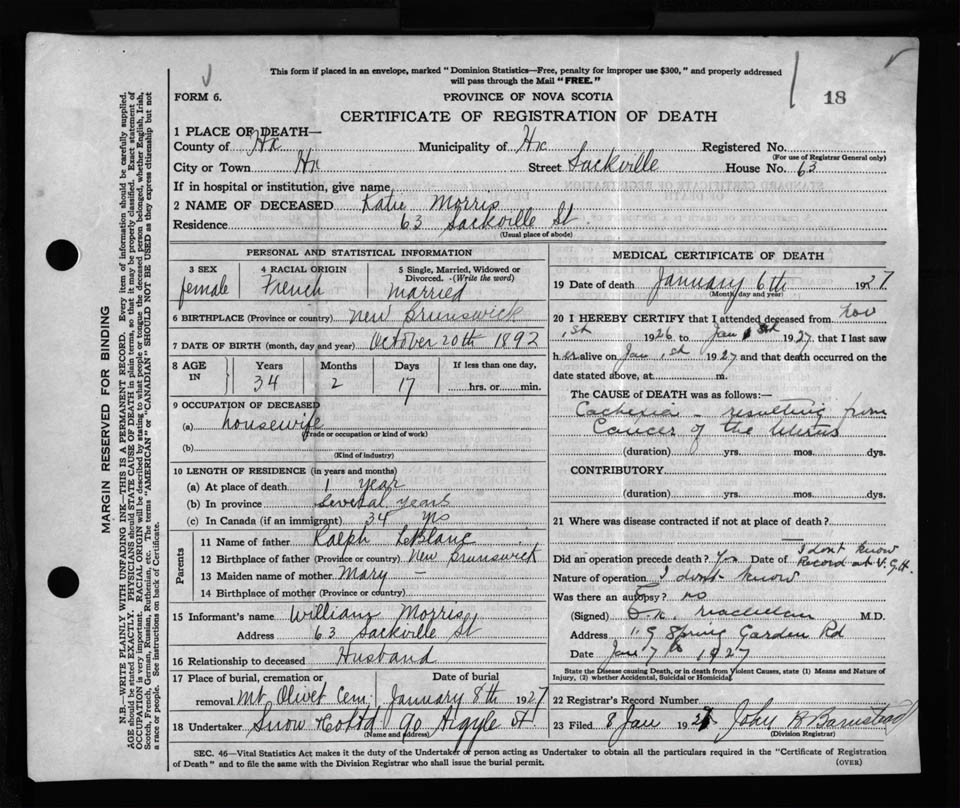 This form if placed in an envelope, marked "Dominion Statistics—Free, penalty for improper use $300," and properly addressed
will pass through the Mail "FREE."
18
FORM 6.
PROVINCE OF NOVA SCOTIA
CERTIFICATE OF REGISTRATION OF DEATH
1 PLACE OF DEATH—
County of Hx Municipality of Hx Registered No.
(For use of Registrar General only)
City or Town Hx Street Sackville House No. 63
If in hospital or institution, give name
2 NAME OF DECEASED Katie Morris
Residence 63 Sackville St
(Usual place of abode)
PERSONAL AND STATISTICAL INFORMATION
3 SEX
female
4 RACIAL ORIGIN
French
5 Single, Married, Widowed or
Divorced. (Write the word)
Married
6 BIRTHPLACE (Province or country) New Brunswick
7 DATE OF BIRTH (month, day and year) October 20th 1892
8 AGE
IN
Years Months Days If less than one day,
34 2 17 hrs. or min.
9 OCCUPATION OF DECEASED
(a) housewife
(Trade or occupation or kind of work)
(b)
(Kind of industry)
10 LENGTH OF RESIDENCE (in years and months)
(a) At place of death 1 year
(b) In province several years
(c) In Canada (if an immigrant) 34 yrs
Parents
11 Name of father Ralph LeBlanc
12 Birthplace of father (Province or country) New Brunswick
13 Maiden name of mother Mary —
14 Birthplace of mother (Province or country)
15 Informant's name William Morris
Address 63 Sackville St
16 Relationship to deceased Husband
17 Place of burial, cremation or Date of burial
removal Mt Olivet Cem. January 8th 1927
18 Undertaker Snow & Co Ltd 90 Argyle St
(Name and address)
MEDICAL CERTIFICATE OF DEATH
19 Date of death January 6th 1927
(Month, day and year)
20 I HEREBY CERTIFY that I attended deceased from Nov
1st 1926 to Jan 1927, that I last saw
h er alive on Jan 1st 1927 and that death occurred on the
date stated above, at m.
The CAUSE OF DEATH was as follows:—
Cachexia — resulting from
Cancer of the Uterus
(duration) yrs. mos. dys.
CONTRIBUTORY
(duration) yrs. mos. dys.
21 Where was disease contracted if not at place of death?
Did an operation precede death? Yes Date of I dont know
Record at V.G.H.
Nature of operation I dont know
Was there an autopsy? no
(Signed) M.D.
Address 19 Spring Garden Rd
Date Jan 7th 1927
State the Disease causing Death, or in death from Violent Causes, state (1) Means and Nature of
Injury, (2) whether Accidental, Suicidal or Homicidal.
22 Registrar's Record Number
23 Filed 8 Jan 1927 John B Barnstead
(Division Registrar)
SEC. 46—Vital Statistics Act makes it the duty of the Undertaker or person acting as Undertaker to obtain all the particulars required in the "Certificate of Registration
of Death" and to file the same with the Division Registrar who shall issue the burial permit.
(OVER)
MARGIN RESERVED FOR BINDING
N.B.—WRITE PLAINLY WITH UNFADING INK—THIS IS A PERMANENT RECORD. Every item of information should be carefully supplied.
AGE should be stated EXACTLY. PHYSICIANS should STATE CAUSE OF DEATH in plain terms, so that it may be properly classified. Exact statement of
OCCUPATION is very important. RACIAL ORIGIN will be described by stating to what people or tongue the deceased person belonged, whether English, Irish,
Scotch, French, German, Russian, Ruthenian, etc. The terms "AMERICAN" or "CANADIAN" SHOULD NOT BE USED as they express citizenship but not
a race or people. See instructions on back of Certificate.